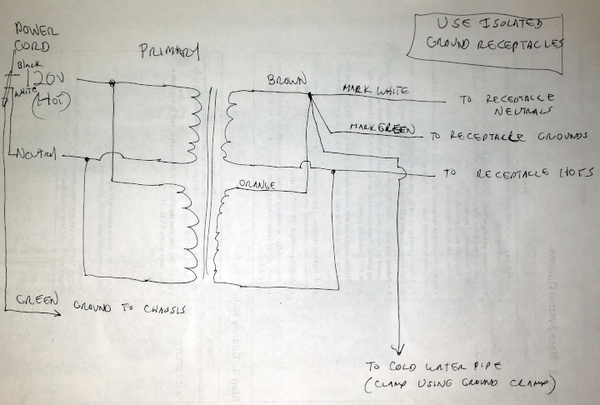 POWER
CORD
PRIMARY
USE ISOLATED
GROUND RECEPTACLES
Black
120V
WHITE
(HOT)
BROWN
MARK WHITE
TO RECEPTACLE
NEUTRALS
MARK GREEN
TO RECEPTACLE GROUNDS
NEUTRAL
ORANGE
TO RECEPTACLE HOTS
GREEN GROUND TO CHASSIS
TO COLD WATER PIPE
(CLAMP USING GROUND CLAMP)